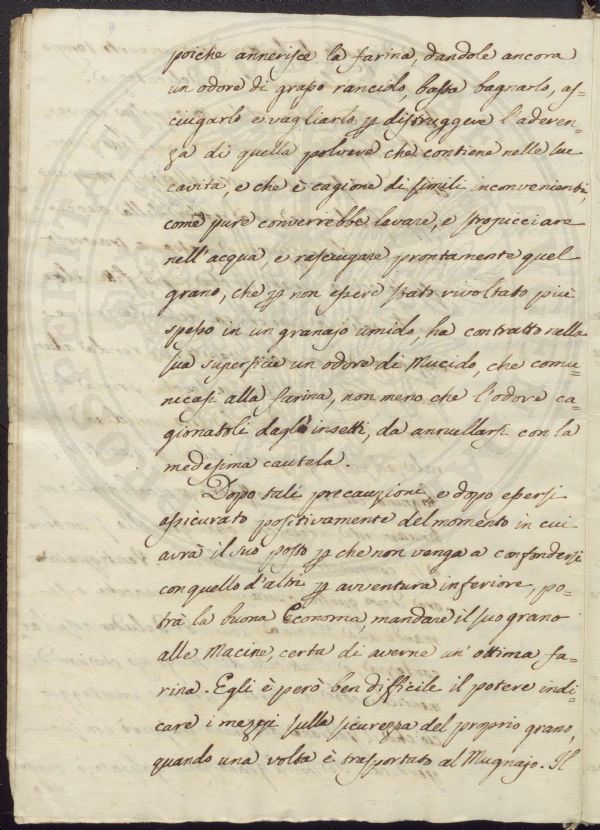 poiche annerisce la farina, dandole ancora
un odore di grasso rancido, basta bagnarlo, as-
ciugarlo e vagliarlo, p distruggere l'aderen-
za di quella polvere che contiene nelle sue
cavità, e che è cagione di simili inconvenienti,
come pure converrebbe lavare, e stropicciare
nell'acqua, e rasciugare prontamente quel
grano, che p non essere stato rivoltato più
spesso in un granajo umido, ha contratto nella
sua superficie un odore di Mucido, che comu-
nicasi alla farina, non meno che l'odore ca-
gionatoli dagl'insetti, da annullarsi con la
medesima cautela.
Dopo tali precauzioni, e dopo essersi
assicurato positivamente del momento in cui
avrà il suo posto p che non venga a confondersi
con quello d'altri p avventura inferiore, po-
trà la buona Economa, mandare il suo grano
alle Macine, certa di averne un'ottima fa-
rina. Egli è però ben difficile il potere indi-
care i mezzi sulla sicurezza del proprio grano,
quando una volta è trasportato al Mugnajo. Il